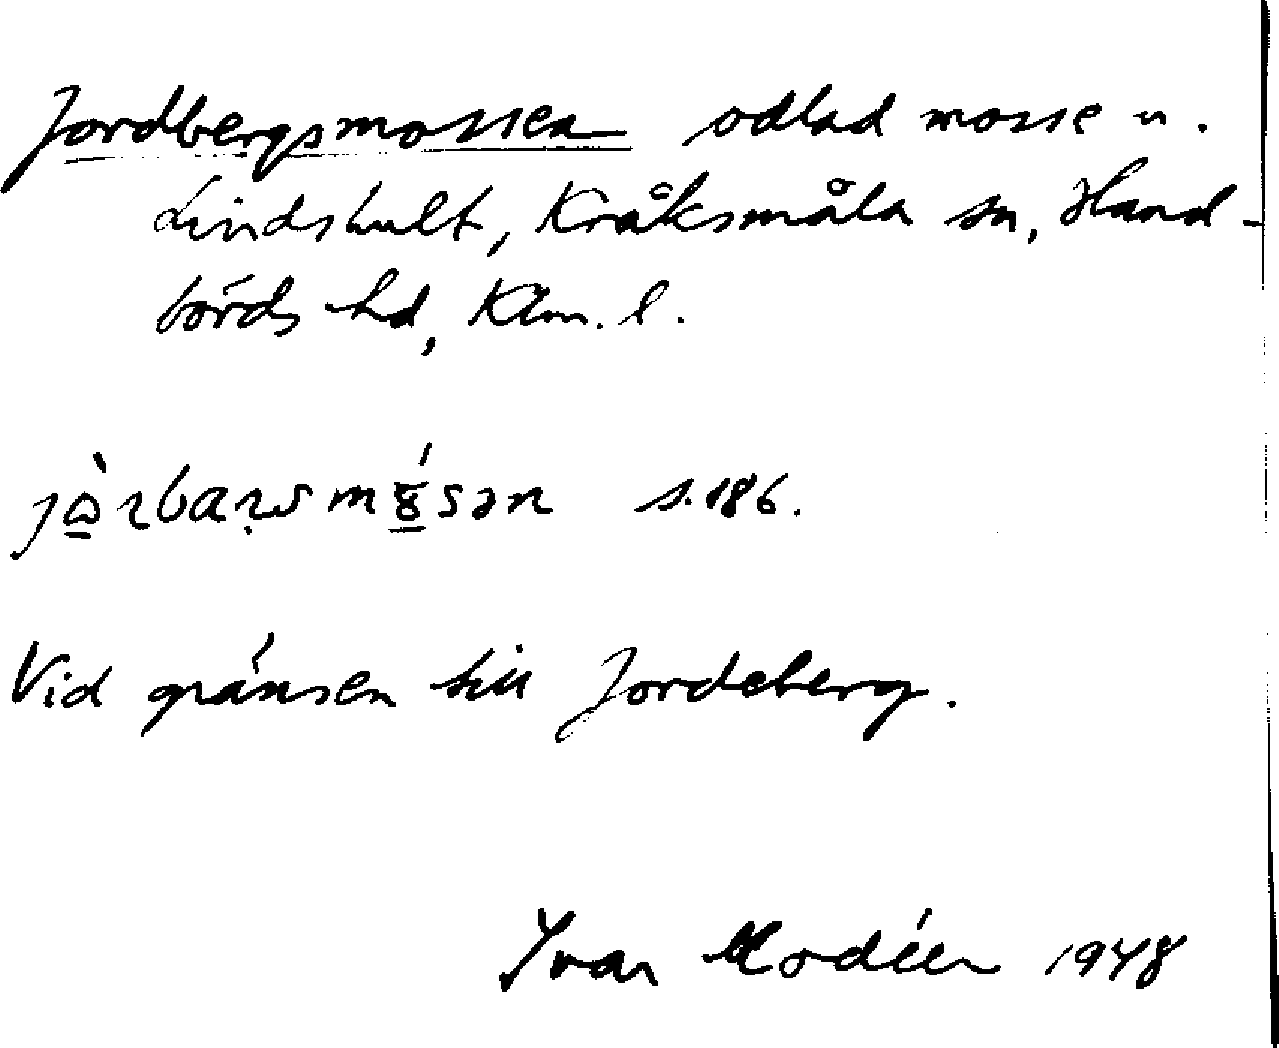 Jordbergsmossen odlad mosse u.
Lindshult, Kråksmåla sn, Hand-
börds hd, Klm. l.
s. 186.
Vid gränsen till Jordeberg.
Ivar Modéer 1948